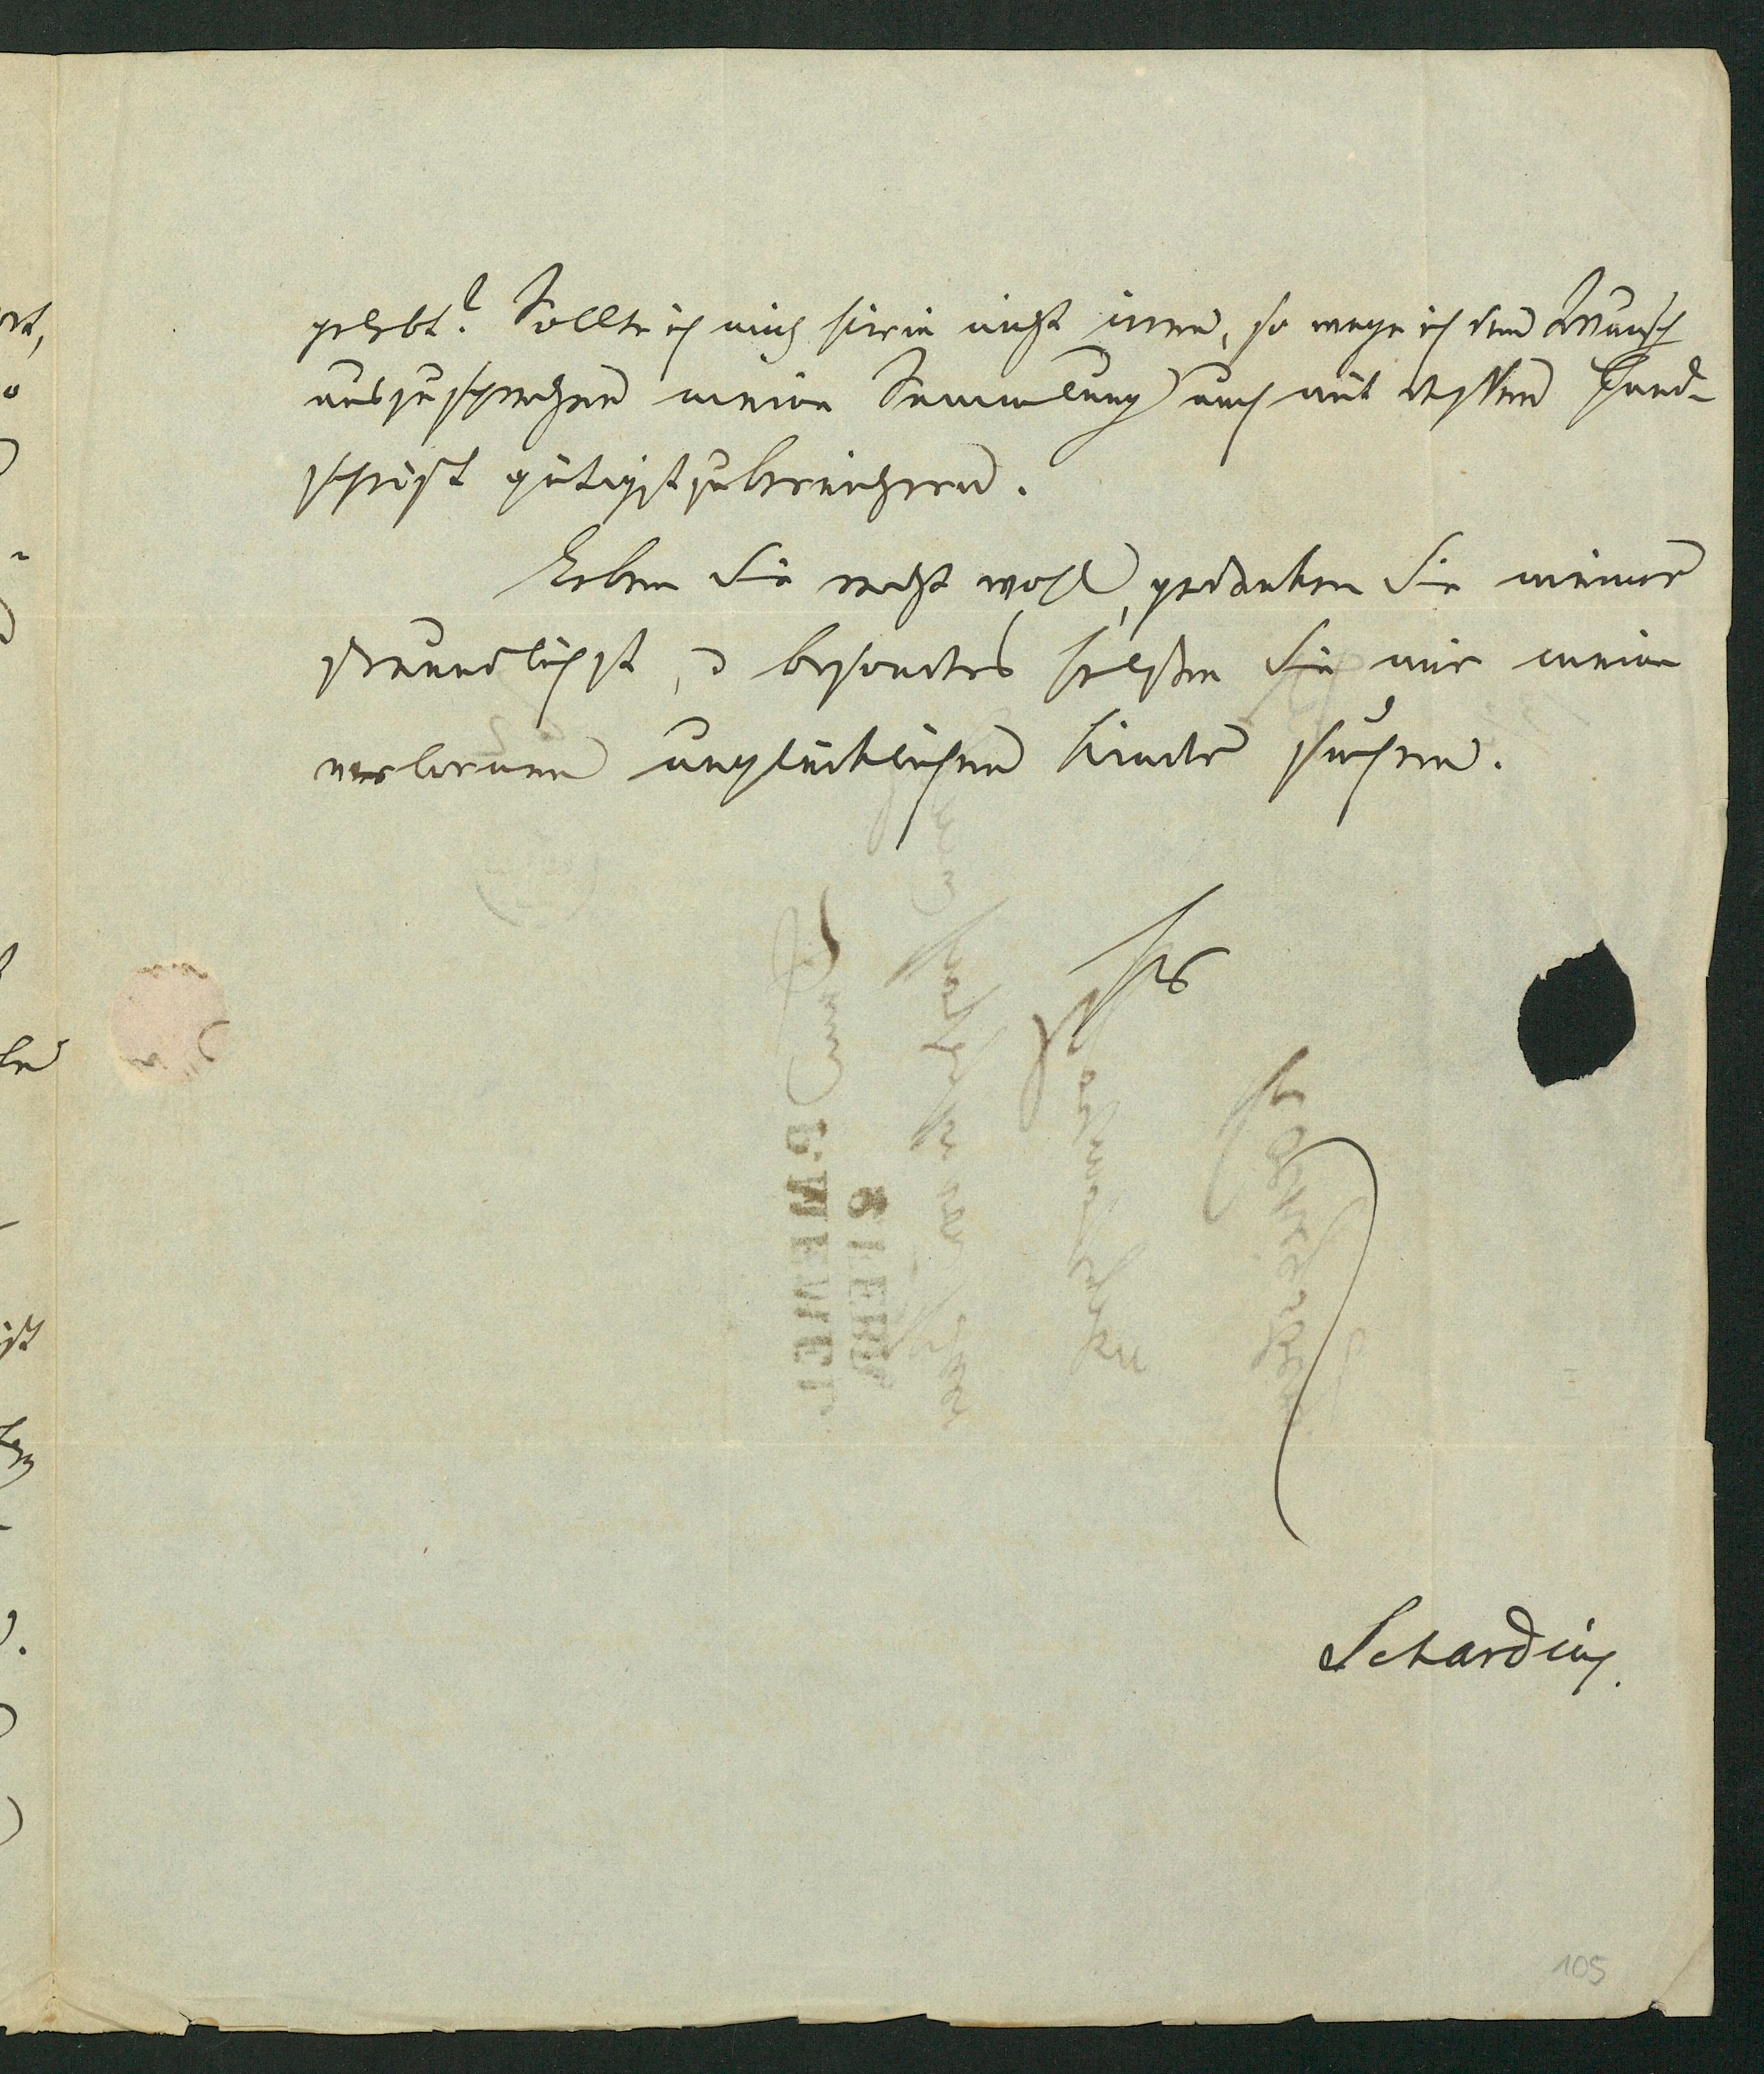 gelebt? Sollte ich mich hierin nicht irren, so wage ich den Wunsch
auszusprechen meine Sammlung auch mit dessen Hand-
schrift gütigst zu bereichern.
Leben Sie recht wohl, gedenken Sie meiner
freundlichst, u besonders helfen Sie mir meine
verlornen unglücklichen Kinder suchen.
Ihr
Scharding.
105